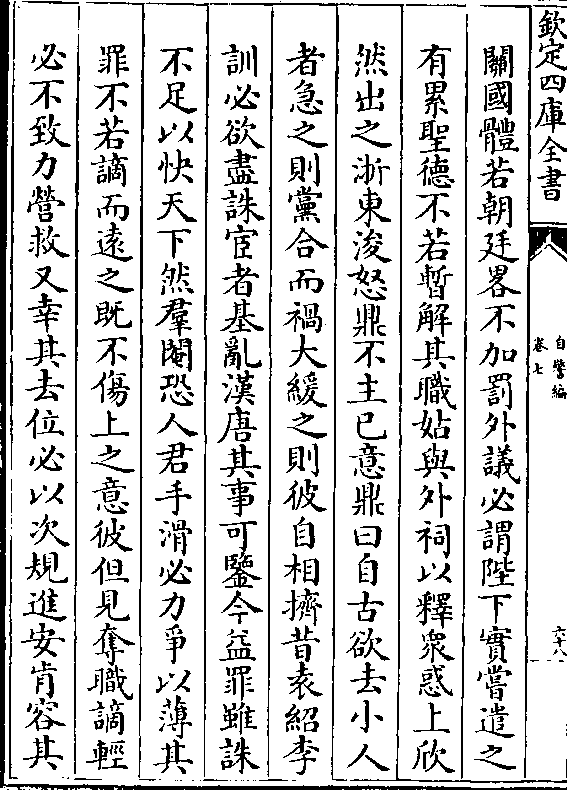 欽定四庫全書
自警編
卷七
六十八
關國體若朝廷畧不加罰外議必謂陛下實嘗遣之
有累聖德不若暫解其職姑與外祠以釋衆惑上欣
然出之浙東浚怒鼎不主已意鼎曰自古欲去小人
者急之則黨合而禍大緩之則彼自相擠昔袁紹李
訓必欲盡誅宦者基亂漢唐其事可鑒今益罪雖誅
不足以快天下然羣閹恐人君手滑必力爭以薄其
罪不若謫而遠之既不傷上之意彼但見奪職謫輕
必不致力營救又幸其去位必以次規進安肯容其